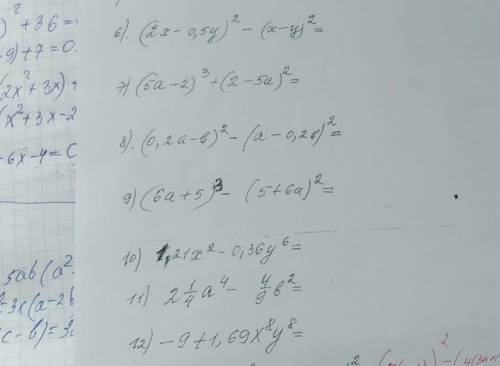 )² + 36 =
-9) + 7 = 0.
(2x² + 3x)
(x² + 3x - 2
+ 6x - 4 = 0
5ab(a²
= 3c(a - 2b
c - b) =
6). (2x - 0,5y)² - (x - y)² =
7) (5a - 2)³ + (2 - 5a)² =
8). (0,2a - b)² - (a - 0,2b)² =
9) (6a + 5)³ - (5 + 6a)² =
10) 1,21x² - 0,36y⁶ =
11) 2 1/4 a⁴ - 4/9 b² =
12) -9 + 1,69x⁸y⁸ =